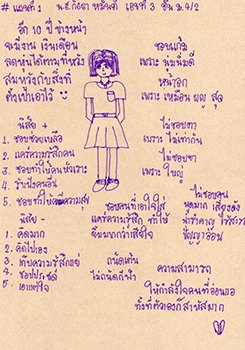 # แผนที่ 1 น.ส. เลขที่ 3 ชั้น ม.4/2
อีก 10 ปี ข้างหน้า
จะมีงาน เงินเดือน
สมหวังกับสิ่งที่
ตั้งเป้าเอาไว้
ชอบแก้ม
เพราะ นิ่มนิ่มดี
หน้าอก
เพราะ เหมือน
ไม่ชอบตา
เพราะ ไม่เท่ากัน
ไม่ชอบขา
เพราะ ใหญ่
นิสัย +
1. ชอบช่วยเหลือ
2. แคร์ความรู้สึกคน
3. ชอบทำให้คนหัวเราะ
4. รับฟังคนอื่น
5. ชอบทำให้คนมีความสุข
นิสัย -
1. คิดมาก
2. คิดไปเอง
3. เก็บความรู้สึกแย่
4. ชอบประชด
5. เอาแต่ใจ
ชอบคนที่เอาใจใส่
แคร์ความรู้สึก ทำให้
ยิ้มมากกว่าเสียใจ
ไม่ชอบคน
พูดมาก เสียงดัง
น่ารำคาญ
ปัญญาอ่อน
ถนัดเต้น
ไม่ถนัดกีฬา
ความสามารถ
ให้กำลังใจคนที่อ่อนแอ
ทั้งที่ตัวเองก็สาหัสมาก